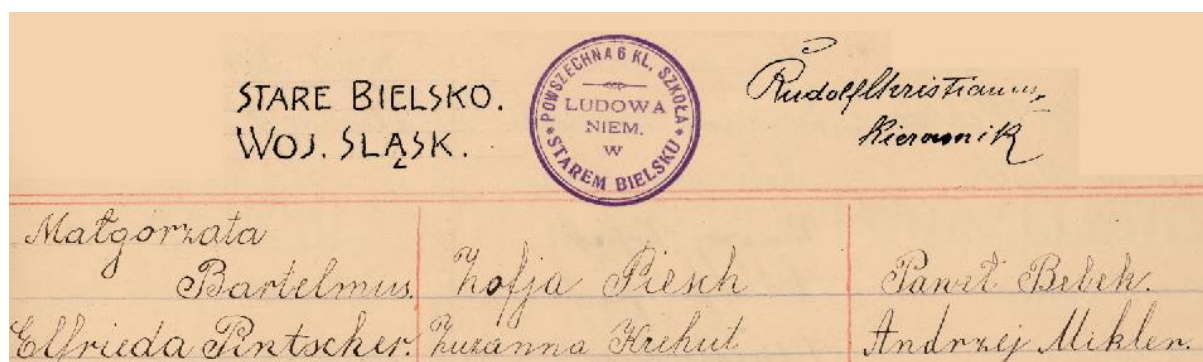 STARE BIELSKO.
WOJ. SLĄSK.
POWSZECHNA 6 KL. SZKOŁA
LUDOWA
NIEM.
W
* STAREM BIELSKU *
Rudolf Christianus,
Kierownik
Małgorzata
Bartelmus.
Zofja Piesch
Paweł Bebek.
Elfrieda Pintscher.
Zuzanna Krehut
Andrzej Mikler.